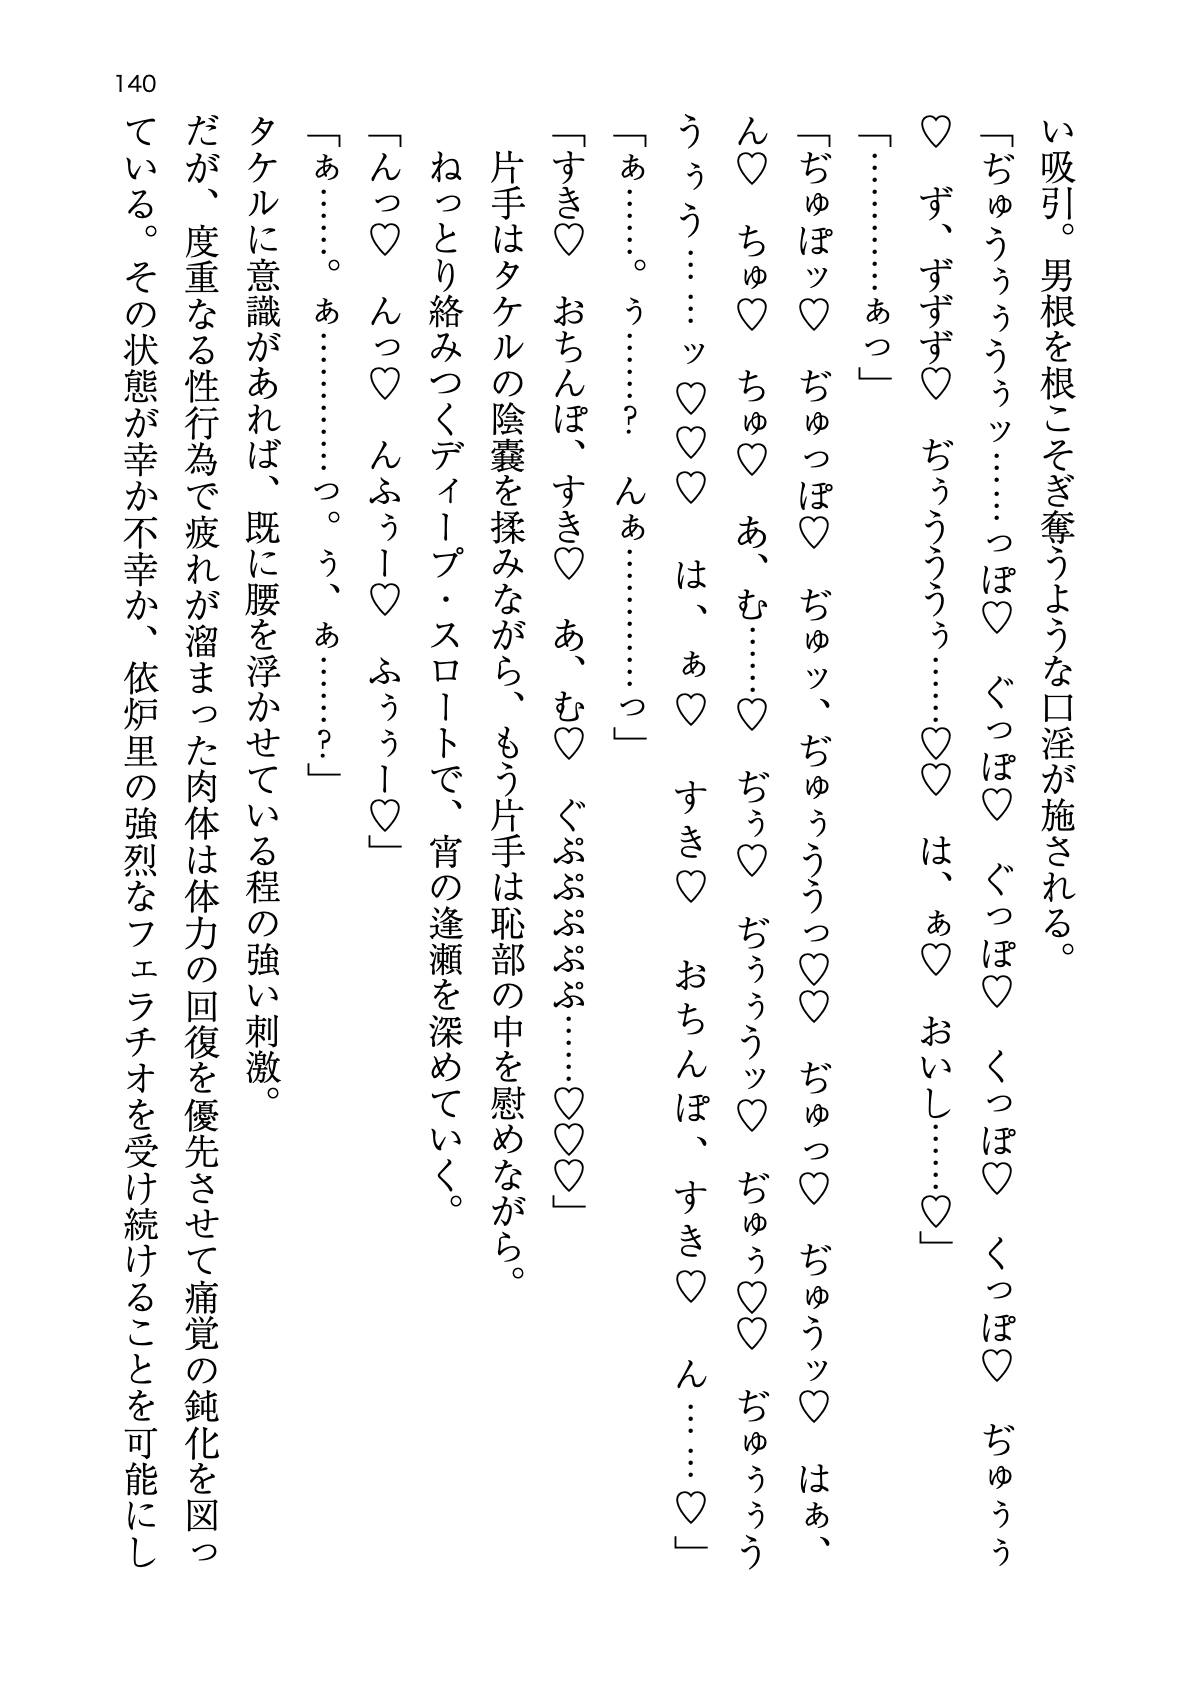 140
い吸引。男根を根こそぎ奪うような口淫が施される。
「ぢゅうぅぅうぅッ……っぽ♡　ぐっぽ♡　ぐっぽ♡　くっぽ♡　くっぽ♡　ぢゅぅぅ
♡　ず、ずずず♡　ぢぅうううぅ……♡♡　は、ぁ♡　おいし……♡」
「…………ぁっ」
「ぢゅぽッ♡　ぢゅっぽ♡　ぢゅッ、ぢゅぅううっ♡♡　ぢゅっ♡　ぢゅうッ♡　はぁ、
ん♡　ちゅ♡　ちゅ♡　あ、む……♡　ぢぅ♡　ぢぅぅうッ♡　ぢゅぅ♡♡　ぢゅぅぅう
うぅう……ッ♡♡♡　は、ぁ♡　すき♡　おちんぽ、すき♡　ん……♡」
「ぁ……。ぅ……?　んぁ…………っ」
「すき♡　おちんぽ、すき♡　あ、む♡　ぐぷぷぷぷぷ……♡♡♡」
　片手はタケルの陰嚢を揉みながら、もう片手は恥部の中を慰めながら。
　ねっとり絡みつくディープ・スロートで、宵の逢瀬を深めていく。
「んっ♡　んっ♡　んふぅー♡　ふぅぅー♡」
「ぁ……。ぁ…………っ。ぅ、ぁ……?」
タケルに意識があれば、既に腰を浮かせている程の強い刺激。
だが、度重なる性行為で疲れが溜まった肉体は体力の回復を優先させて痛覚の鈍化を図っ
ている。その状態が幸か不幸か、依炉里の強烈なフェラチオを受け続けることを可能にし